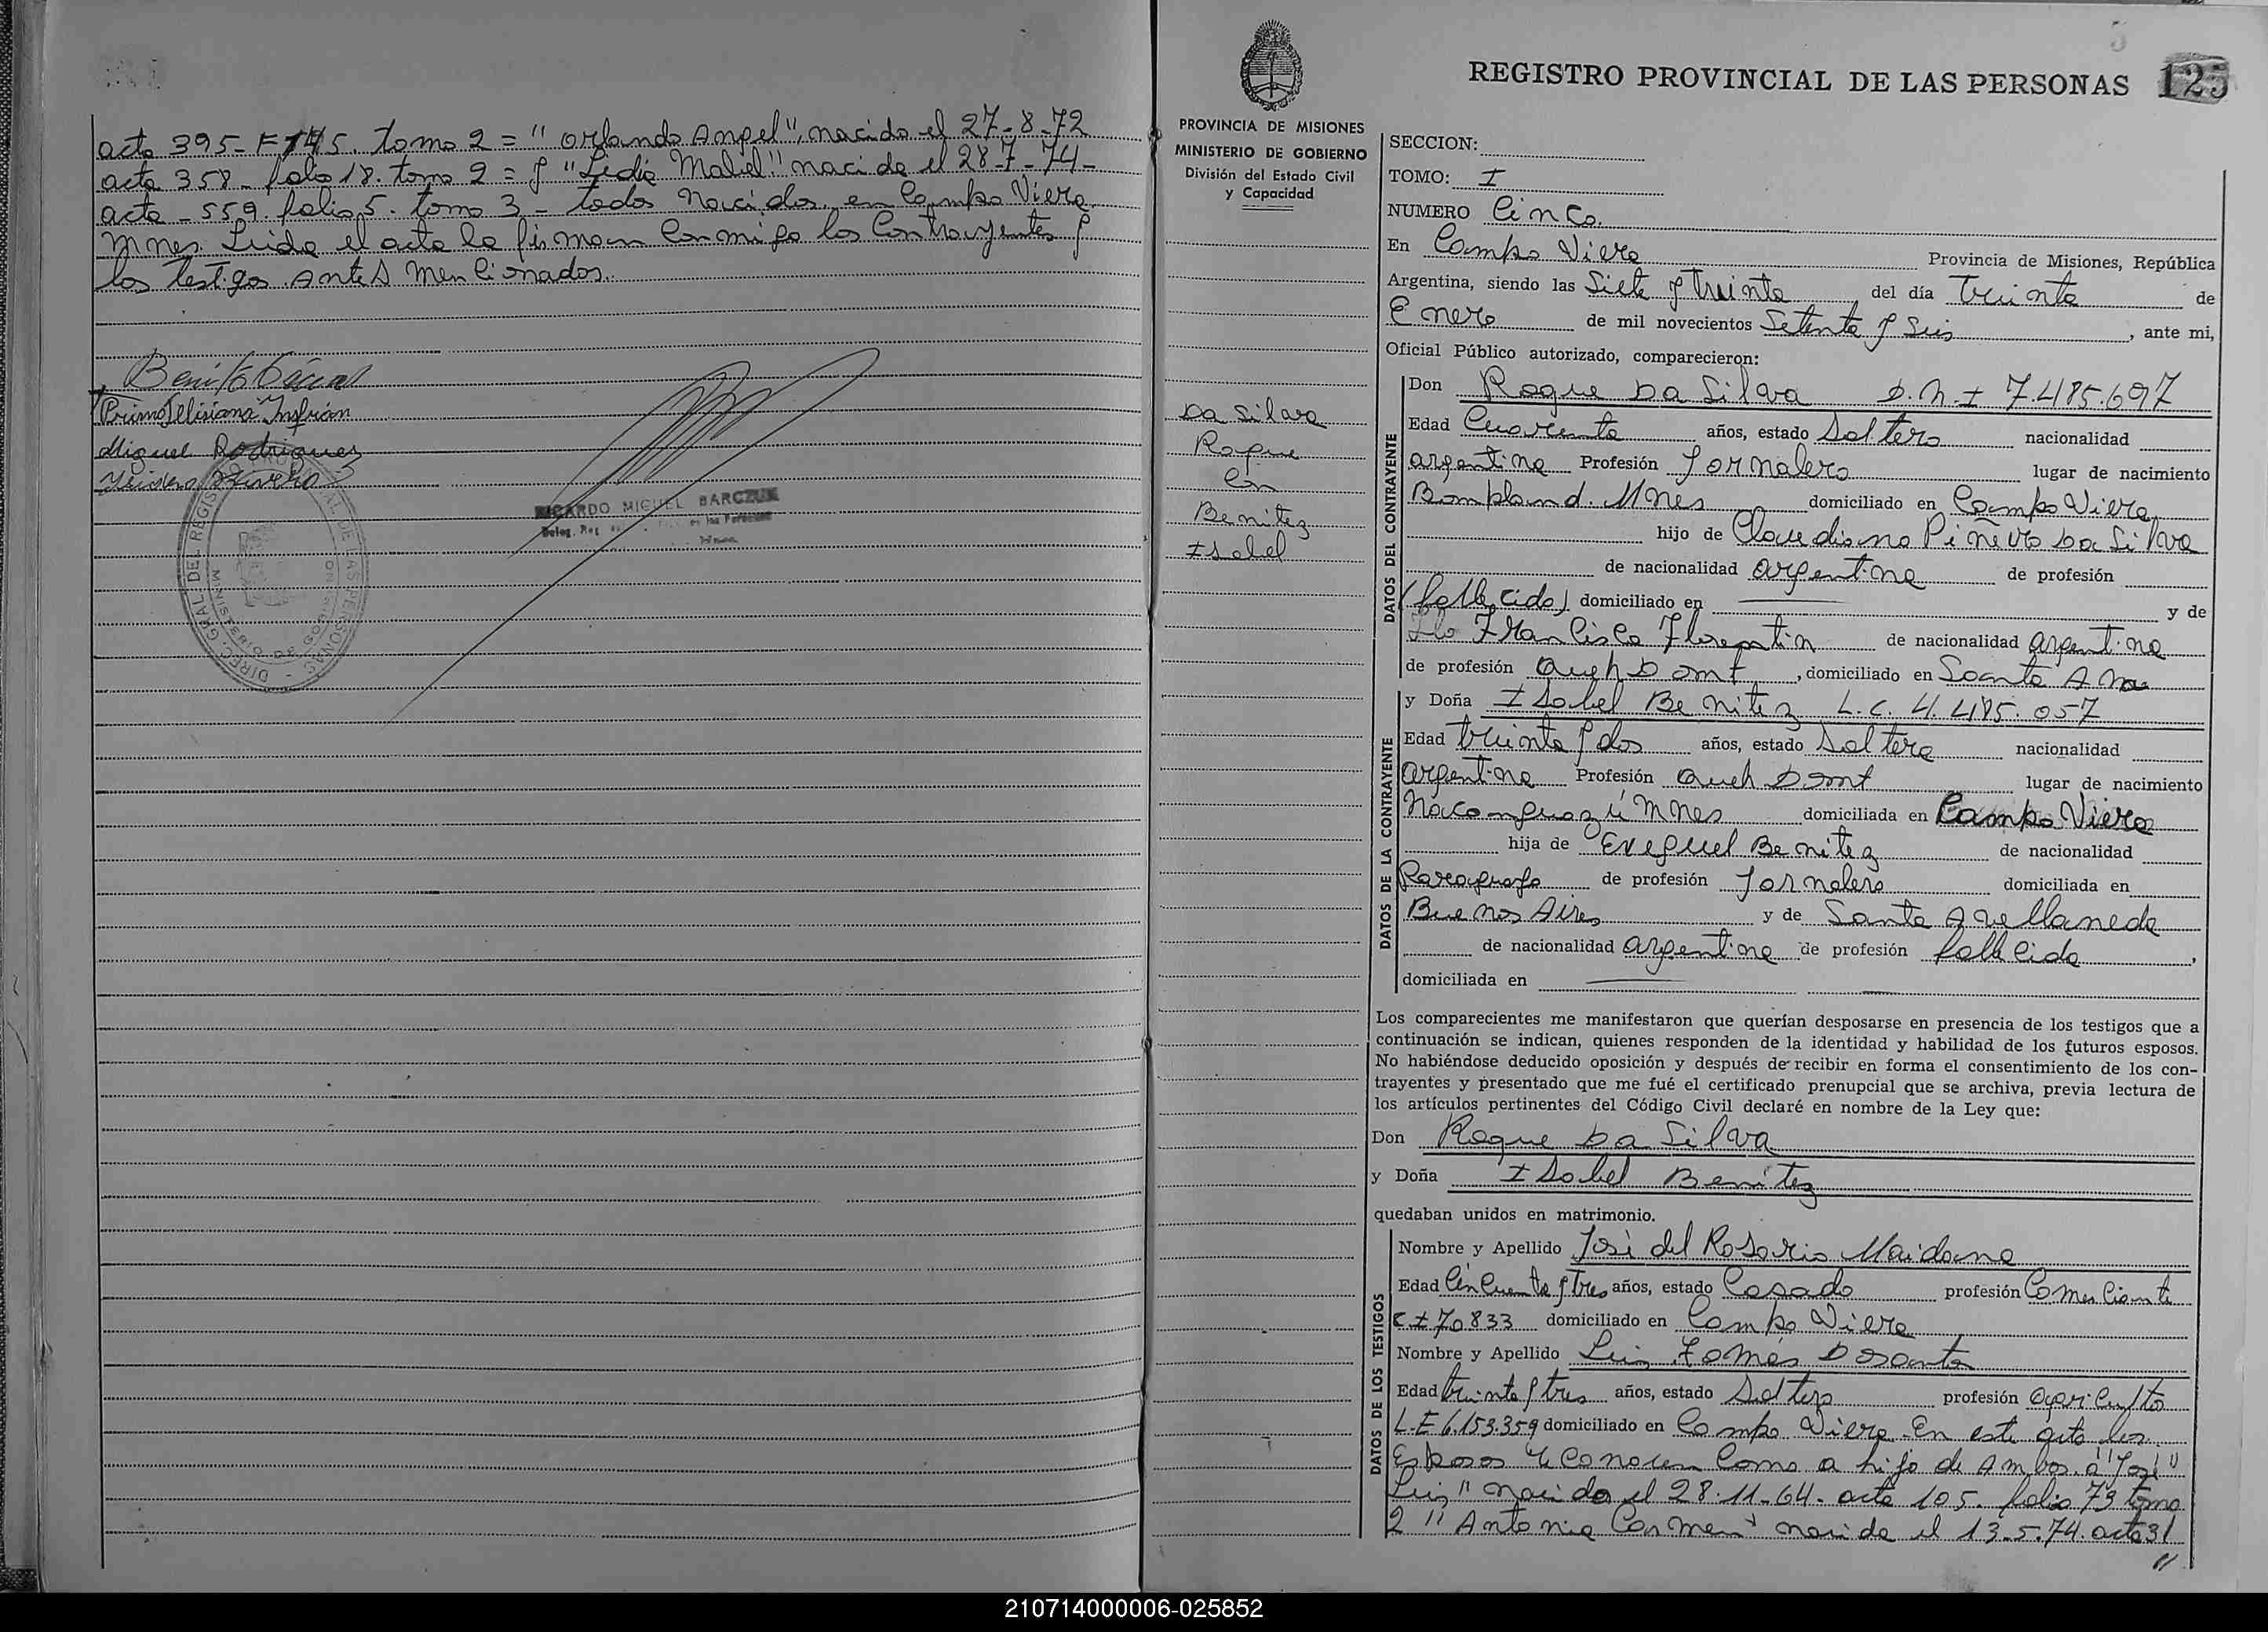 acta 395-F145. tomo 2 = "Orlando Angel", nacido el 27-8-72
acta 358- folio 18. tomo 2 = y "Lidia Mabel" nacida el 28-7-74-
acta - 559 folio 5. tomo 3 - todos nacidos en Campo Viera
Mnes. Leida el acta la firman conmigo los Contrayentes y
los testigos antes mencionados.
Benito
Insfrán
Miguel Rodriguez
RICARDO MIGUEL BARCZUK
DIREC. GRAL DEL REGISTRO PROVINCIAL DE LAS PERSONAS
MINISTERIO DE GOBIERNO
REGISTRO PROVINCIAL DE LAS PERSONAS 125
5
PROVINCIA DE MISIONES
MINISTERIO DE GOBIERNO
División del Estado Civil
y Capacidad
Da Silva
Roque
Con
Benitez
Isabel
SECCION:
TOMO: I
NUMERO Cinco.
En Campo Viera Provincia de Misiones, República
Argentina, siendo las Siete y treinta del día treinta de
Enero de mil novecientos Setenta y Seis, ante mi,
Oficial Público autorizado, comparecieron:
DATOS DEL CONTRAYENTE
Don Roque Da Silva D.N.I 7.485.697
Edad Cuarenta años, estado Soltero nacionalidad
argentina Profesión Jornalero lugar de nacimiento
Bompland. Mnes domiciliado en Campo Viera
hijo de Claudiano Piñeiro Da Silva
de nacionalidad argentina de profesión
(fallecido) domiciliado en y de
Francisca Florentin de nacionalidad argentina
de profesión queh Domt, domiciliado en Santa Ana
DATOS DE LA CONTRAYENTE
y Doña Isabel Benitez L.C. 4.485.057
Edad treinta y dos años, estado Soltera nacionalidad
argentina Profesión queh Domt lugar de nacimiento
Ñacanguazú Mnes domiciliada en Campo Viera
hija de Exequiel Benitez de nacionalidad
Paraguaya de profesión Jornalero domiciliada en
Buenos Aires y de Santa Avellaneda
de nacionalidad argentina de profesión fallecida,
domiciliada en
Los comparecientes me manifestaron que querían desposarse en presencia de los testigos que a
continuación se indican, quienes responden de la identidad y habilidad de los futuros esposos.
No habiéndose deducido oposición y después de recibir en forma el consentimiento de los con-
trayentes y presentado que me fué el certificado prenupcial que se archiva, previa lectura de
los artículos pertinentes del Código Civil declaré en nombre de la Ley que:
Don Roque Da Silva
y Doña Isabel Benitez
quedaban unidos en matrimonio.
DATOS DE LOS TESTIGOS
Nombre y Apellido José del Rosario Maidana
Edad Cincuenta y tres años, estado Casado profesión Comerciante
C I 70833 domiciliado en Campo Viera
Nombre y Apellido Luis Tomás Dosantos
Edad treinta y tres años, estado Soltero profesión agriculto
L.E 6.153.359 domiciliado en Campo Viera. En este acto los
Esposos reconocen como a hijo de Ambos a "José
Luis" nacido el 28-11-64- acta 105. folio 73 tomo
2 "Antonia Carmen" nacida el 13-5-74. acta 31
//
210714000006-025852